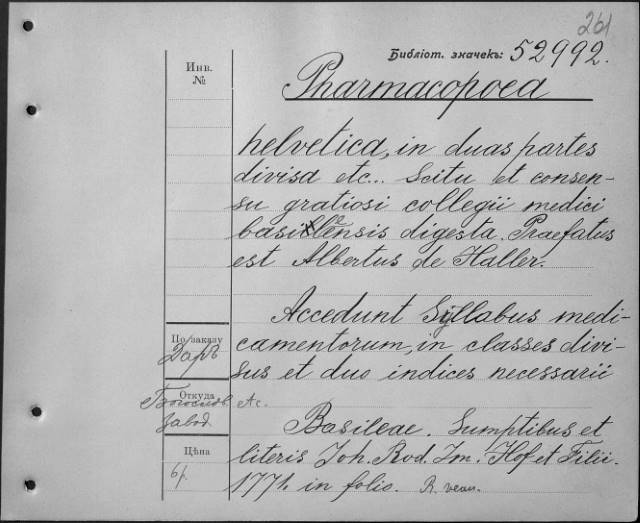 261
Библіот. значекъ: 52992.
Инв.
№
Pharmacopoea
helvetica, in duas partes
divisa etc... Scitu et consen-
su gratiosi collegii medici
basileensis digesta. Praefatus
est Albertus de Haller.
Accedunt Syllabus medi-
camentorum, in classes divi-
sus et duo indices necessarii
По заказу
Даръ
Откуда
Богослов. Ас.
завод.
Basileae. Sumptibus et
literis Joh. Rod. Im. Hof et Filii.
1771, in folio.
Цѣна
6 р.